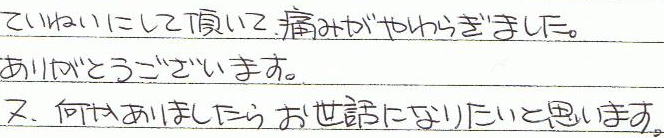 ていねいにして頂いて、痛みがやわらぎました。
ありがとうございます。
又、何かありましたら お世話になりたいと思います。